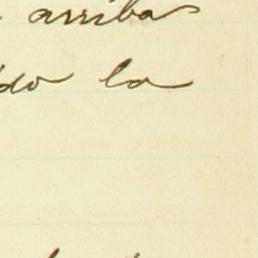 arriba
do la